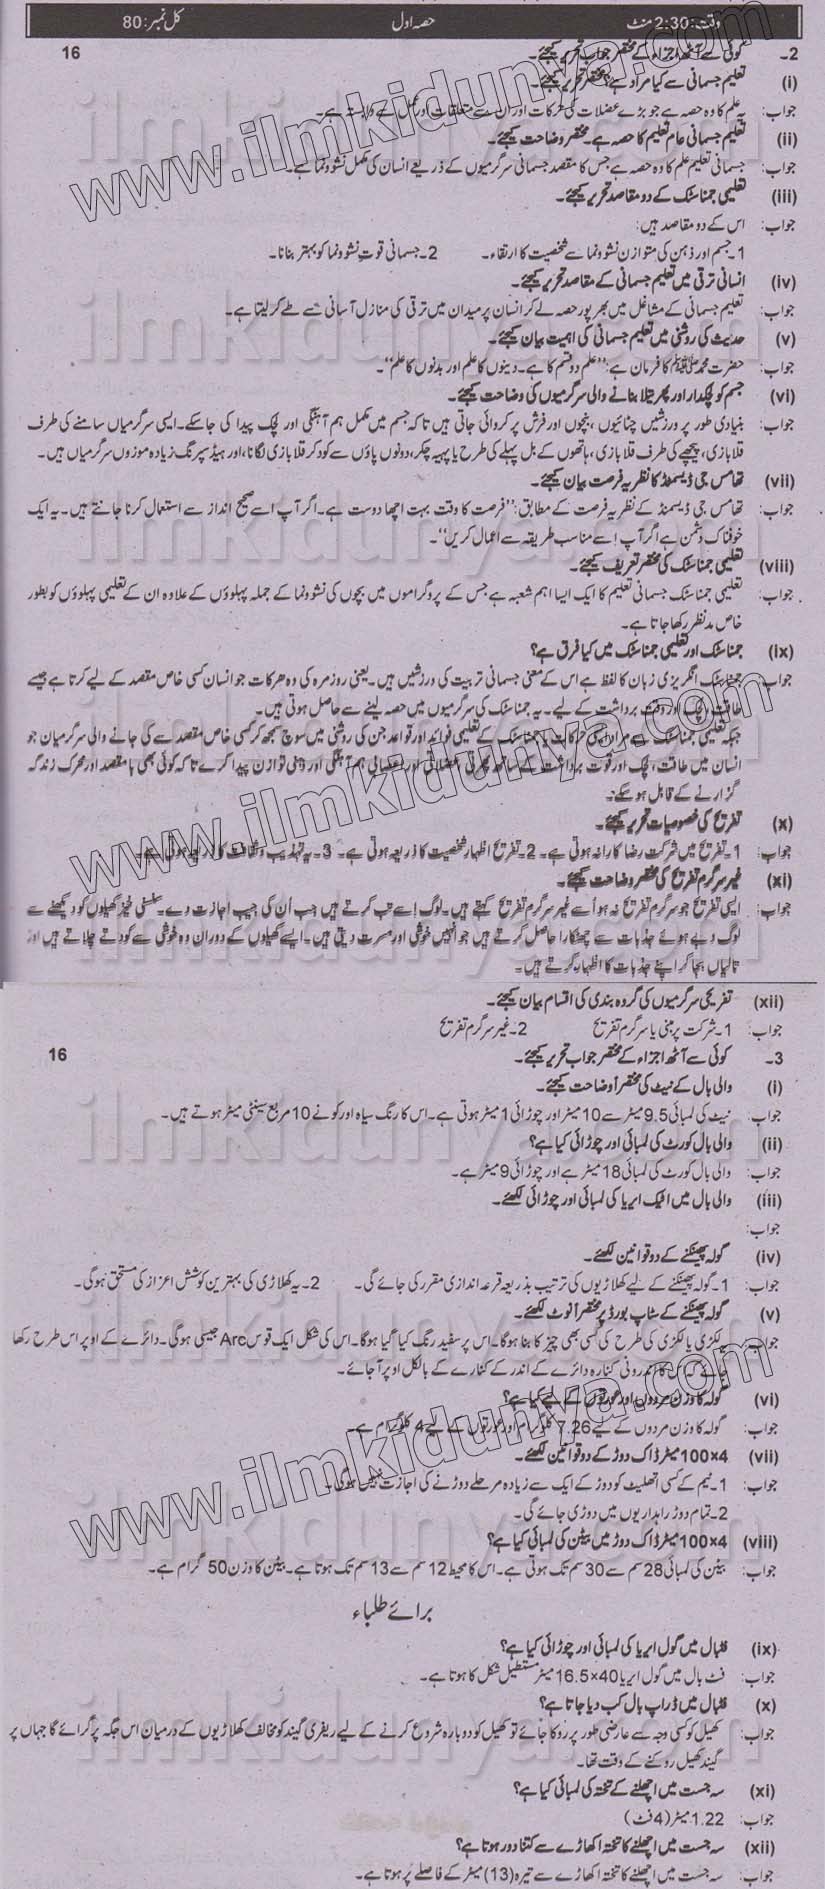 وقت: 2:30 منٹ حصہ اول کل نمبر: 80
2۔ کوئی سے آٹھ اجزاء کے مختصر جواب تحریر کیجئے۔ 16
(i) تعلیم جسمانی سے کیا مراد ہے؟ مختصر تحریر کیجئے۔
جواب: یہ علم کا وہ حصہ ہے جو بڑے عضلات کی حرکات اور ان سے متعلقات اور عمل سے وابستہ ہے۔
(ii) تعلیم جسمانی عام تعلیم کا حصہ ہے۔ مختصر وضاحت کیجئے۔
جواب: جسمانی تعلیم علم کا وہ حصہ ہے جس کا مقصد جسمانی سرگرمیوں کے ذریعے انسان کی مکمل نشوونما ہے۔
(iii) تعلیمی جمناسٹک کے دو مقاصد تحریر کیجئے۔
جواب: اس کے دو مقاصد ہیں:
1۔ جسم اور ذہن کی متوازن نشوونما سے شخصیت کا ارتقاء۔ 2۔ جسمانی قوت نشوونما کو بہتر بنانا۔
(iv) انسانی ترقی میں تعلیم جسمانی کے مقاصد تحریر کیجئے۔
جواب: تعلیم جسمانی کے مشاغل میں بھرپور حصہ لے کر انسان ہر میدان میں ترقی کی منازل آسانی سے طے کر لیتا ہے۔
(v) حدیث کی روشنی میں تعلیم جسمانی کی اہمیت بیان کیجئے۔
جواب: حضرت محمد ﷺ کا فرمان ہے: "علم دو قسم کا ہے۔ دینوں کا علم اور بدنوں کا علم"۔
(vi) جسم کو لچکدار اور پھرتیلا بنانے والی سرگرمیوں کی وضاحت کیجئے۔
جواب: بنیادی طور پر ورزشیں چٹائیوں، بنچوں اور فرش پر کروائی جاتی ہیں تاکہ جسم میں مکمل ہم آہنگی اور لچک پیدا کی جا سکے۔ ایسی سرگرمیاں سامنے کی طرف
قلابازی، پیچھے کی طرف قلابازی، ہاتھوں کے بل پہلے کی طرح یا پہیہ چکر، دونوں پاؤں سے کود کر قلابازی لگانا، اور ہیڈ سپرنگ زیادہ موزوں سرگرمیاں ہیں۔
(vii) تھامس جی ڈیسمنڈ کا نظریہ فرصت بیان کیجئے۔
جواب: تھامس جی ڈیسمنڈ کے نظریہ فرصت کے مطابق: "فرصت کا وقت بہت اچھا دوست ہے۔ اگر آپ اسے صحیح انداز سے استعمال کرنا جانتے ہیں۔ یہ ایک
خوفناک دشمن ہے اگر آپ اسے مناسب طریقہ سے اعمال کریں"۔
(viii) تعلیمی جمناسٹک کی مختصر تعریف کیجئے۔
جواب: تعلیمی جمناسٹک جسمانی تعلیم کا ایک ایسا اہم شعبہ ہے جس کے پروگراموں میں بچوں کی نشوونما کے جملہ پہلوؤں کے علاوہ ان کے تعلیمی پہلوؤں کو بطور
خاص مدنظر رکھا جاتا ہے۔
(ix) جمناسٹک اور تعلیمی جمناسٹک میں کیا فرق ہے؟
جواب: جمناسٹک انگریزی زبان کا لفظ ہے اس کے معنی جسمانی تربیت کی ورزشیں ہیں۔ یعنی روزمرہ کی وہ حرکات جو انسان کسی خاص مقصد کے لیے کرتا ہے جیسے
طاقت، لچک اور قوت برداشت کے لیے۔ یہ جمناسٹک کی سرگرمیوں میں حصہ لینے سے حاصل ہوتی ہیں۔
جبکہ تعلیمی جمناسٹک سے مراد ایسی حرکات یا جمناسٹک کے تعلیمی فوائد اور قواعد جن کی روشنی میں سوچ سمجھ کر کسی خاص مقصد سے کی جانے والی سرگرمیاں جو
انسان میں طاقت، لچک اور قوت برداشت کے ساتھ پھرتی، عضلاتی اور اعصابی ہم آہنگی اور ذہنی توازن پیدا کرے تاکہ کوئی بھی بامقصد اور متحرک زندگی
گزارنے کے قابل ہو سکے۔
(x) تفریح کی خصوصیات تحریر کیجئے۔
جواب: 1۔ تفریح میں شرکت رضا کارانہ ہوتی ہے۔ 2۔ تفریح اظہار شخصیت کا ذریعہ ہوتی ہے۔ 3۔ یہ تہذیب و ثقافت کا ذریعہ ہوتی ہے۔
(xi) غیر سرگرم تفریح کی مختصر وضاحت کیجئے۔
جواب: ایسی تفریح جو سرگرم تفریح نہ ہو اُسے غیر سرگرم تفریح کہتے ہیں۔ لوگ اسے تب کرتے ہیں جب اُن کی جیب اجازت دے۔ سنسنی خیز کھیلوں کو دیکھنے سے
لوگ دبے ہوئے جذبات سے چھٹکارا حاصل کرتے ہیں جو انہیں خوشی اور مسرت دیتی ہیں۔ ایسے کھیلوں کے دوران وہ خوشی سے کودتے چلاتے ہیں اور
تالیاں بجا کر اپنے جذبات کا اظہار کرتے ہیں۔
(xii) تفریحی سرگرمیوں کی گروہ بندی کی اقسام بیان کیجئے۔
جواب: 1۔ شرکت پر مبنی یا سرگرم تفریح 2۔ غیر سرگرم تفریح
3۔ کوئی سے آٹھ اجزاء کے مختصر جواب تحریر کیجئے۔ 16
(i) والی بال کے نیٹ کی مختصراً وضاحت کیجئے۔
جواب: نیٹ کی لمبائی 9.5 میٹر سے 10 میٹر اور چوڑائی 1 میٹر ہوتی ہے۔ اس کا رنگ سیاہ اور کونے 10 مربع سینٹی میٹر ہوتے ہیں۔
(ii) والی بال کورٹ کی لمبائی اور چوڑائی کیا ہے؟
جواب: والی بال کورٹ کی لمبائی 18 میٹر ہے اور چوڑائی 9 میٹر ہے۔
(iii) والی بال میں اٹیک ایریا کی لمبائی اور چوڑائی لکھئے۔
جواب:
(iv) گولہ پھینکنے کے دو قوانین لکھئے۔
جواب: 1۔ گولہ پھینکنے کے لیے کھلاڑیوں کی ترتیب بذریعہ قرعہ اندازی مقرر کی جائے گی۔ 2۔ یہ کھلاڑی کی بہترین کوشش اعزاز کی مستحق ہوگی۔
(v) گولہ پھینکنے کے سٹاپ بورڈ پر مختصراً نوٹ لکھئے۔
جواب: یہ لکڑی یا لکڑی کی طرح کی کسی بھی چیز کا بنا ہوگا۔ اس پر سفید رنگ کیا گیا ہوگا۔ اس کی شکل ایک قوس Arc جیسی ہوگی۔ دائرے کے اوپر اس طرح رکھا
جائے کہ اس کا اندرونی کنارہ دائرے کے اندر کے کنارے کے بالکل اوپر آ جائے۔
(vi) گولہ کا وزن مردوں اور عورتوں کے لیے کیا ہے؟
جواب: گولہ کا وزن مردوں کے لیے 7.26 کلوگرام اور عورتوں کے لیے 4 کلوگرام ہے۔
(vii) 100×4 میٹر ڈاک دوڑ کے دو قوانین لکھئے۔
جواب: 1۔ ٹیم کے کسی اتھلیٹ کو دوڑ کے ایک سے زیادہ مرحلے دوڑنے کی اجازت نہیں ہوگی۔
2۔ تمام دوڑ راہداریوں میں دوڑی جائے گی۔
(viii) 100×4 میٹر ڈاک دوڑ میں بیٹن کی لمبائی کیا ہے؟
جواب: بیٹن کی لمبائی 28 سم سے 30 سم تک ہوتی ہے۔ اس کا محیط 12 سم سے 13 سم تک ہوتا ہے۔ بیٹن کا وزن 50 گرام ہے۔
برائے طلباء
(ix) فٹبال میں گول ایریا کی لمبائی اور چوڑائی کیا ہے؟
جواب: فٹ بال میں گول ایریا 40×16.5 میٹر مستطیل شکل کا ہوتا ہے۔
(x) فٹبال میں ڈراپ بال کب دیا جاتا ہے؟
جواب: کھیل کو کسی وجہ سے عارضی طور پر روکا جائے تو کھیل کو دوبارہ شروع کرنے کے لیے ریفری گیند کو مخالف کھلاڑیوں کے درمیان اس جگہ پر گرائے گا جہاں پر
گیند کھیل روکنے کے وقت تھا۔
(xi) سہ جست میں اچھلنے کے تختہ کی لمبائی کیا ہے؟
جواب: 1.22 میٹر (4 فٹ)
(xii) سہ جست میں اچھلنے کا تختہ اکھاڑے سے کتنا دور ہوتا ہے؟
جواب: سہ جست میں اچھلنے کا تختہ اکھاڑے سے تیرہ (13) میٹر کے فاصلے پر ہوتا ہے۔
www.ilmkidunya.com